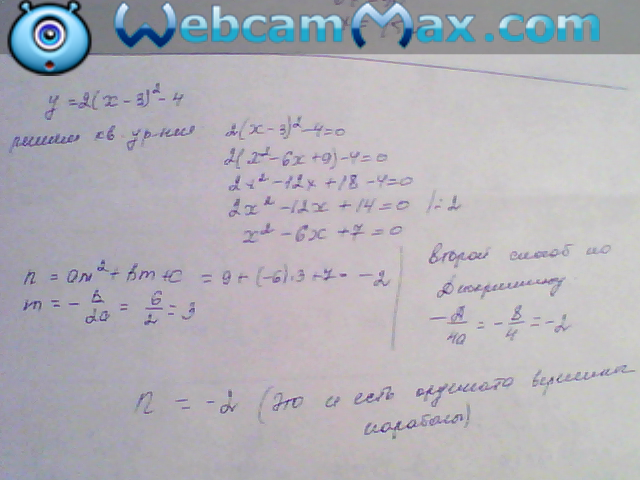 WebcamMax.com
y = 2(x - 3)² - 4
решаем кв. ур-ние
2(x - 3)² - 4 = 0
2(x² - 6x + 9) - 4 = 0
2x² - 12x + 18 - 4 = 0
2x² - 12x + 14 = 0 | : 2
x² - 6x + 7 = 0
n = am² + bm + c = 9 + (-6)·3 + 7 = -2
m = - b/2a = 6/2 = 3
второй способ по
Дискриминанту
- Д/4a = - 8/4 = -2
n = -2 (Это и есть ордината вершины
параболы)